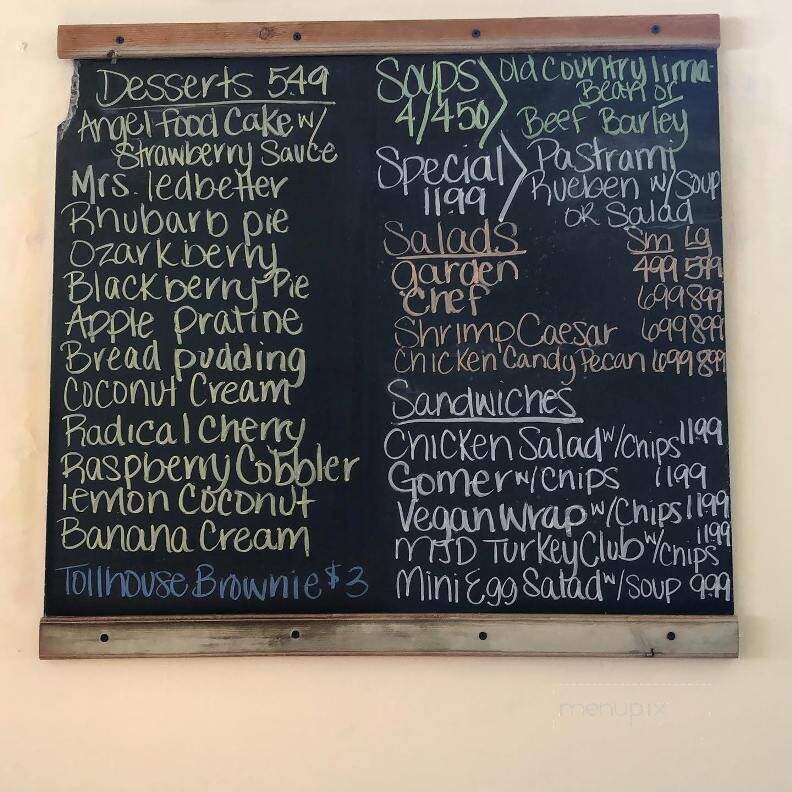 Desserts 549
Angel food Cake w/
Strawberry Sauce
Mrs. ledbetter
Rhubarb pie
Ozarkberry
Blackberry Pie
Apple pratine
Bread pudding
Coconut Cream
Radical Cherry
Raspberry Cobbler
lemon Coconut
Banana Cream
Tollhouse Brownie $3
Soups
4/450
Old Country lima
Bean or
Beef Barley
Special
1199
Pastrami
Rueben w/ Soup
OR Salad
Salads Sm Lg
garden 499 599
Chef 699 899
Shrimp Caesar 699 899
Chicken Candy Pecan 699 899
Sandwiches
Chicken Salad w/chips 1199
Gomer w/chips 1199
Vegan Wrap w/Chips 1199
MJD Turkey Club w/chips 1199
Mini Egg Salad w/soup 999
menupix